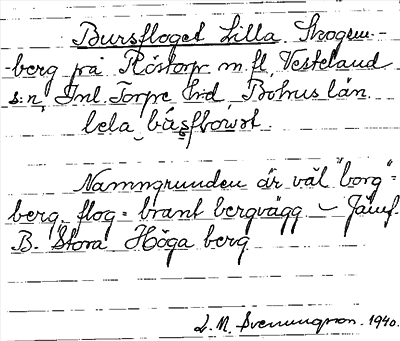 Bursfloget Lilla Skogsm.-
-berg på Röstorp m.fl, Vesteland
s:n, Inl. Torpe hd, Bohus län.
lela bus̥flowət

Namngrunden är väl "borg"=
berg. flog = brant bergvägg – Jämf.
B. Stora Höga berg
L. M. Svenungsson. 1940.